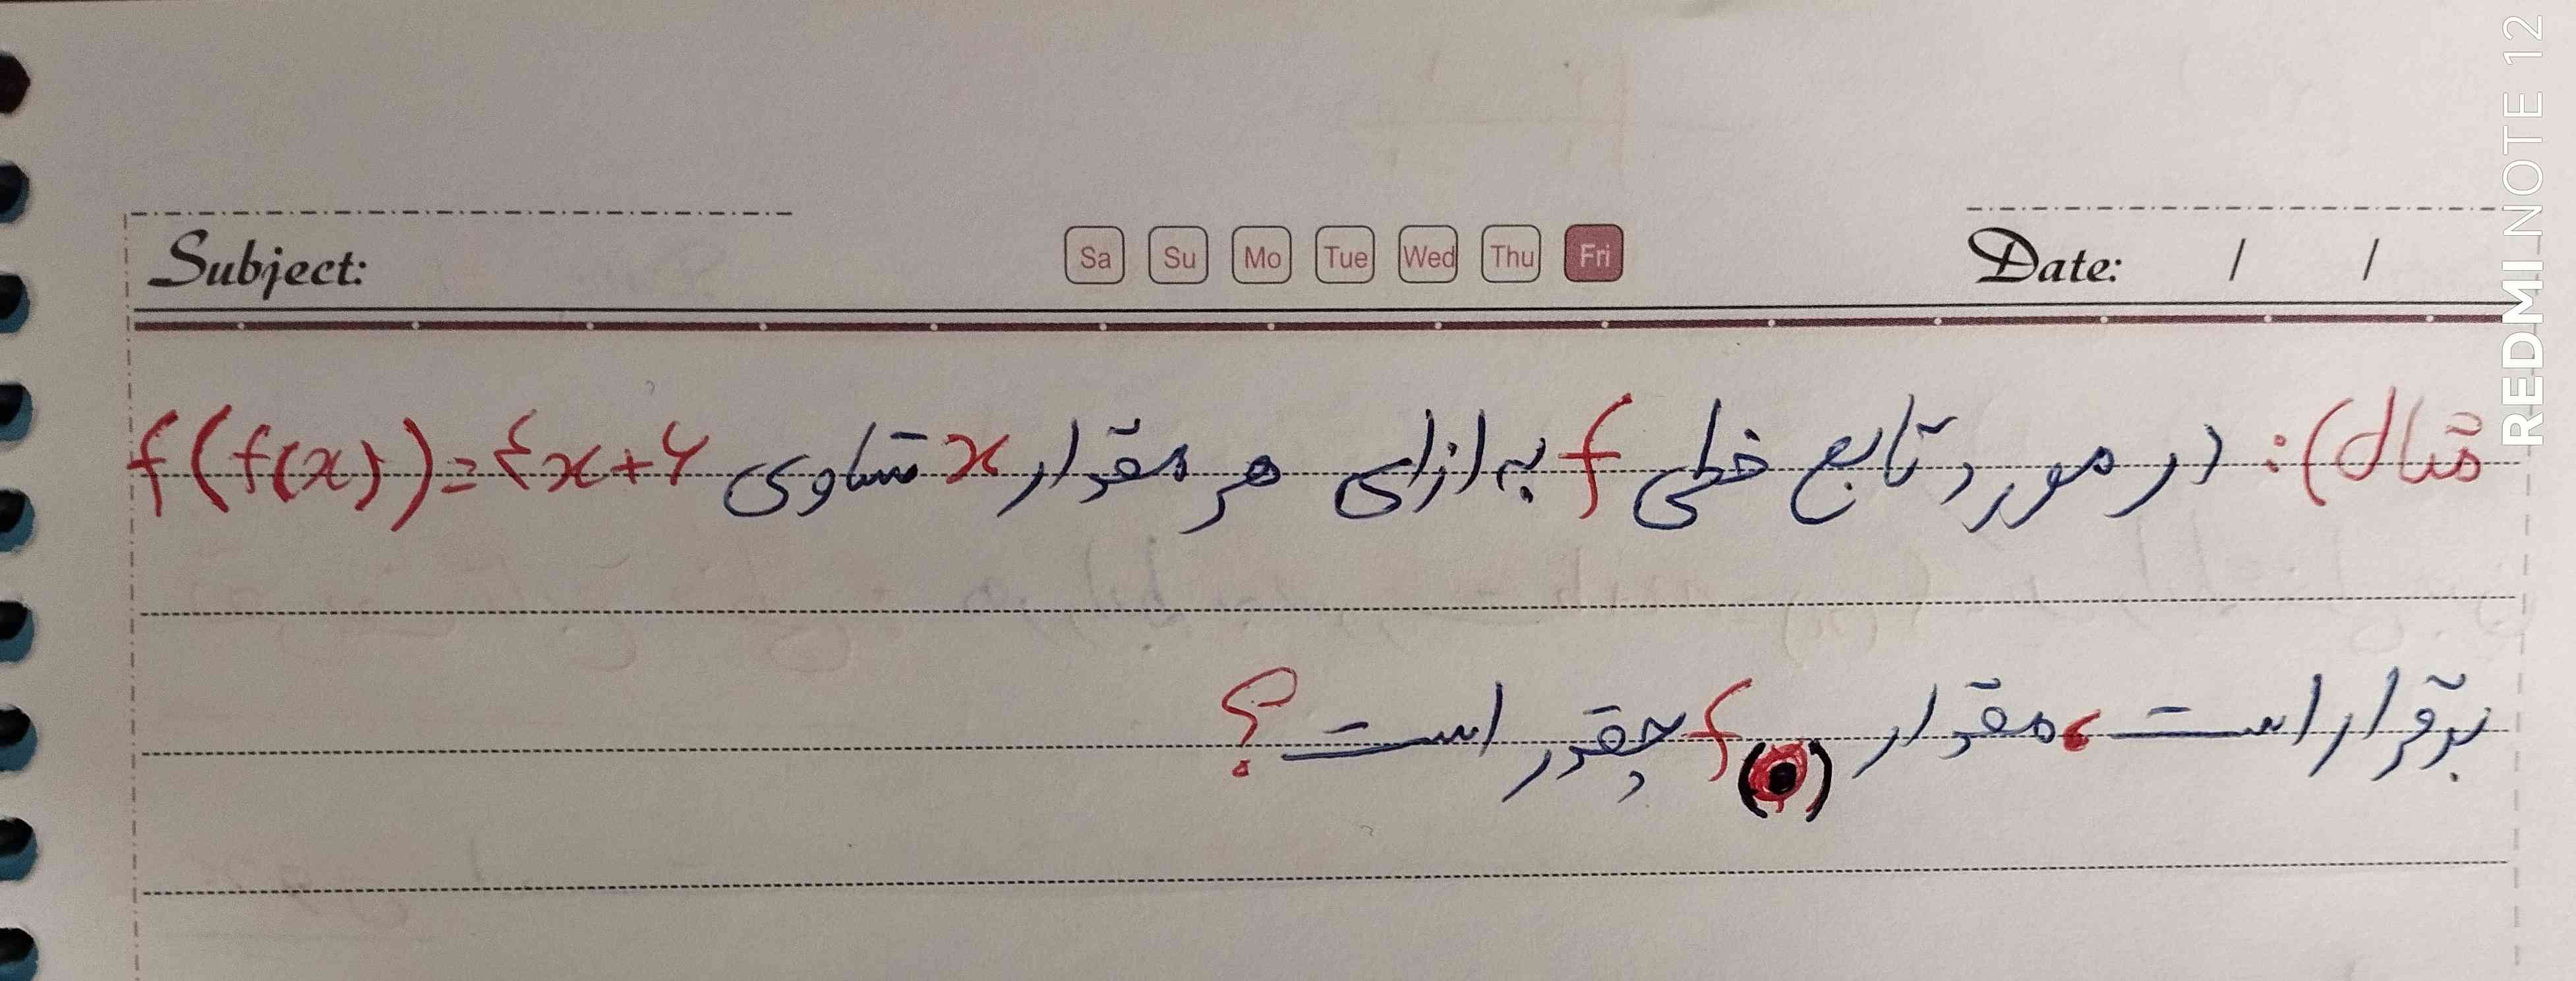 Subject: Sa Su Mo Tue Wed Thu Fri Date: / /
مثال): در مورد تابع خطی f به ازای هر مقدار x تساوی f(f(x))=۴x+۶
برقرار است، مقدار f( ) چقدر است؟
REDMI NOTE 12